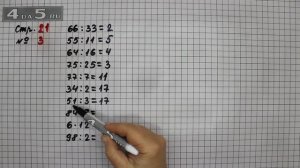 4 на 5.ru
Стр. 21
№ 3
66 : 33 = 2
55 : 11 = 5
64 : 16 = 4
75 : 25 = 3
77 : 7 = 11
34 : 2 = 17
51 : 3 = 17
6 · 12
98 : 2 =